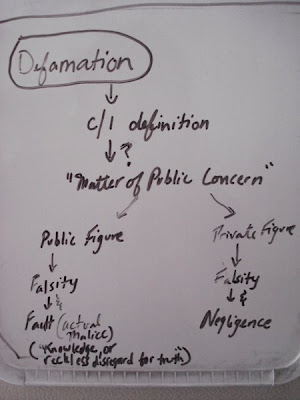 Defamation
c/l definition
?
"Matter of Public Concern"
Public Figure
Private Figure
Falsity
Falsity
&
&
Fault (actual
malice)
Negligence
("Knowledge, or
reckless disregard for truth")